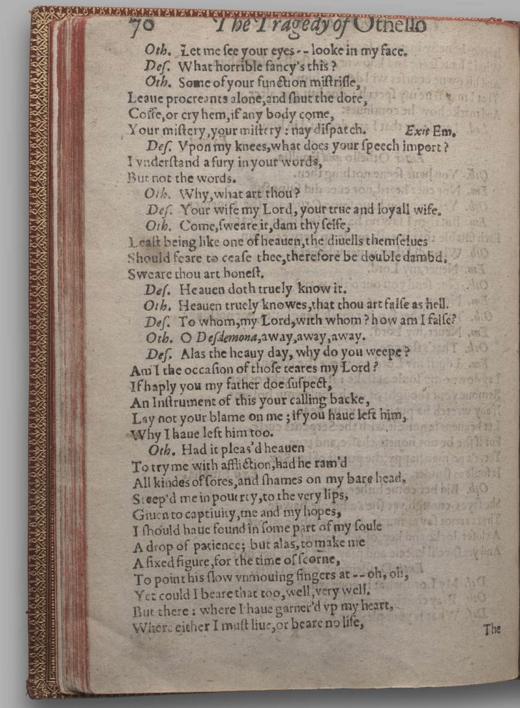 70 The Tragedy of Othello
Oth. Let me ſee your eyes-- looke in my face.
Deſ. What horrible fancy's this?
Oth. Some of your function miſtriſſe,
Leaue procreants alone, and ſhut the dore,
Coffe, or cry hem, if any body come,
Your miſtery, your miſtery: nay diſpatch. Exit Em.
Deſ. Vpon my knees, what does your ſpeech import?
I vnderſtand a fury in your words,
But not the words.
Oth. Why, what art thou?
Deſ. Your wife my Lord, your true and loyall wife.
Oth. Come, ſweare it, dam thy ſelfe,
Leaſt being like one of heauen, the diuells themſelues
Should feare to ceaſe thee, therefore be double dambd,
Sweare thou art honeſt.
Deſ. Heauen doth truely know it.
Oth. Heauen truely knowes, that thou art falſe as hell.
Deſ. To whom, my Lord, with whom? how am I falſe?
Oth. O Deſdemona, away, away, away.
Deſ. Alas the heauy day, why do you weepe?
Am I the occaſion of thoſe teares my Lord?
If haply you my father doe ſuſpect,
An Inſtrument of this your calling backe,
Lay not your blame on me; if you haue left him,
Why I haue left him too.
Oth. Had it pleas'd heauen
To try me with affliction, had he ram'd
All kindes of ſores, and ſhames on my bare head,
Steep'd me in pouerty, to the very lips,
Giuen to captiuity, me and my hopes,
I ſhould haue found in ſome part of my ſoule
A drop of patience; but alas, to make me
A fixed figure, for the time of ſcorne,
To point his ſlow vnmouing fingers at -- oh, oh,
Yet could I beare that too, well, very well.
But there: where I haue garner'd vp my heart,
Where either I muſt liue, or beare no life,
The